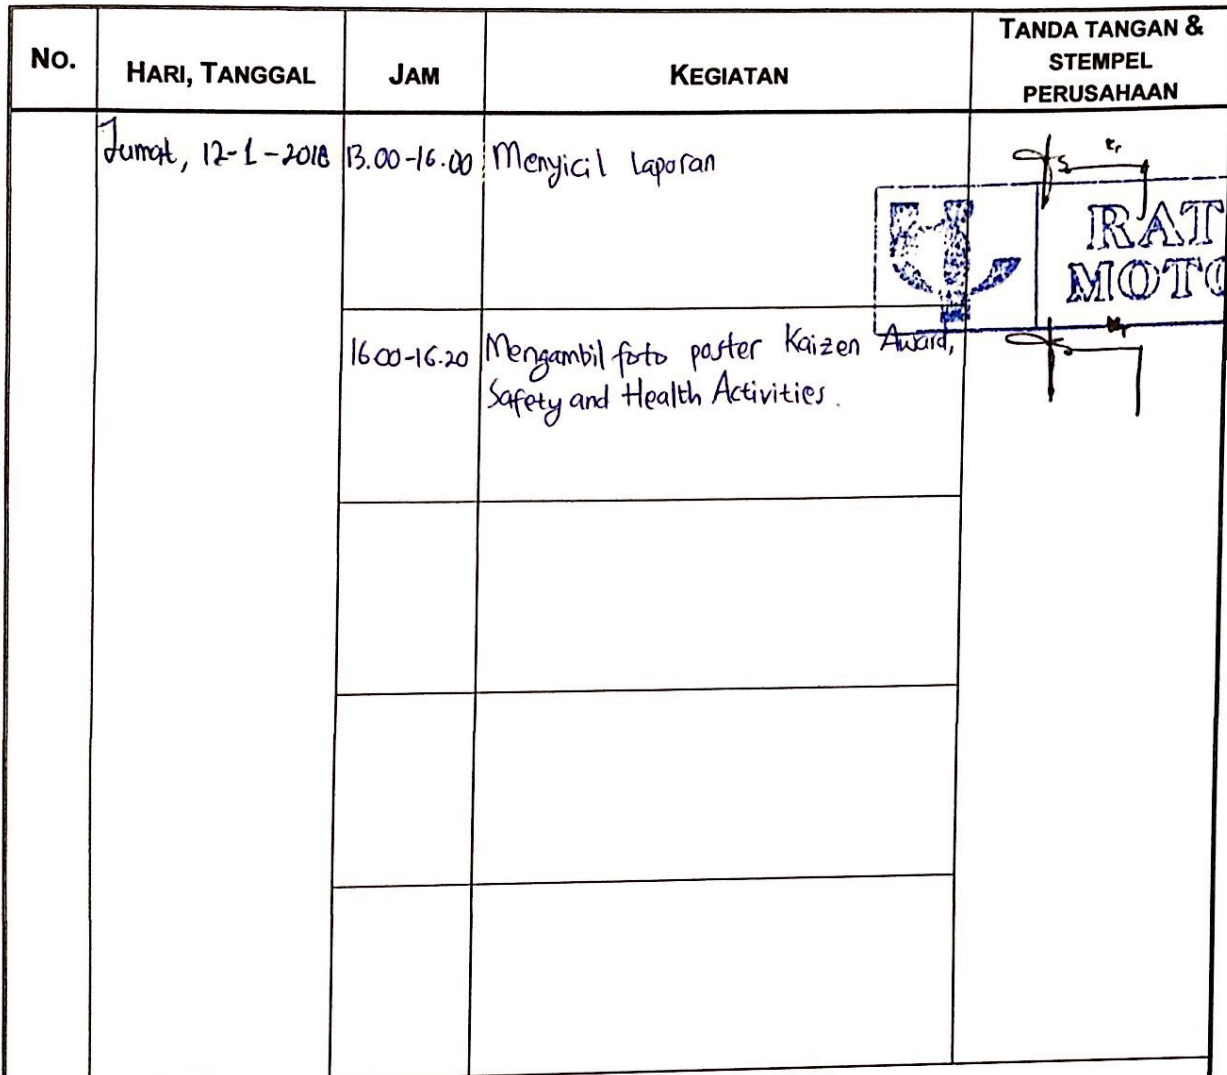 No.
HARI, TANGGAL
JAM
KEGIATAN
TANDA TANGAN &
STEMPEL
PERUSAHAAN
Jumat, 12-1-2018
13.00-16.00
Menyicil laporan
RAT
MOTO
16.00-16.20
Mengambil foto poster Kaizen Award,
Safety and Health Activities.